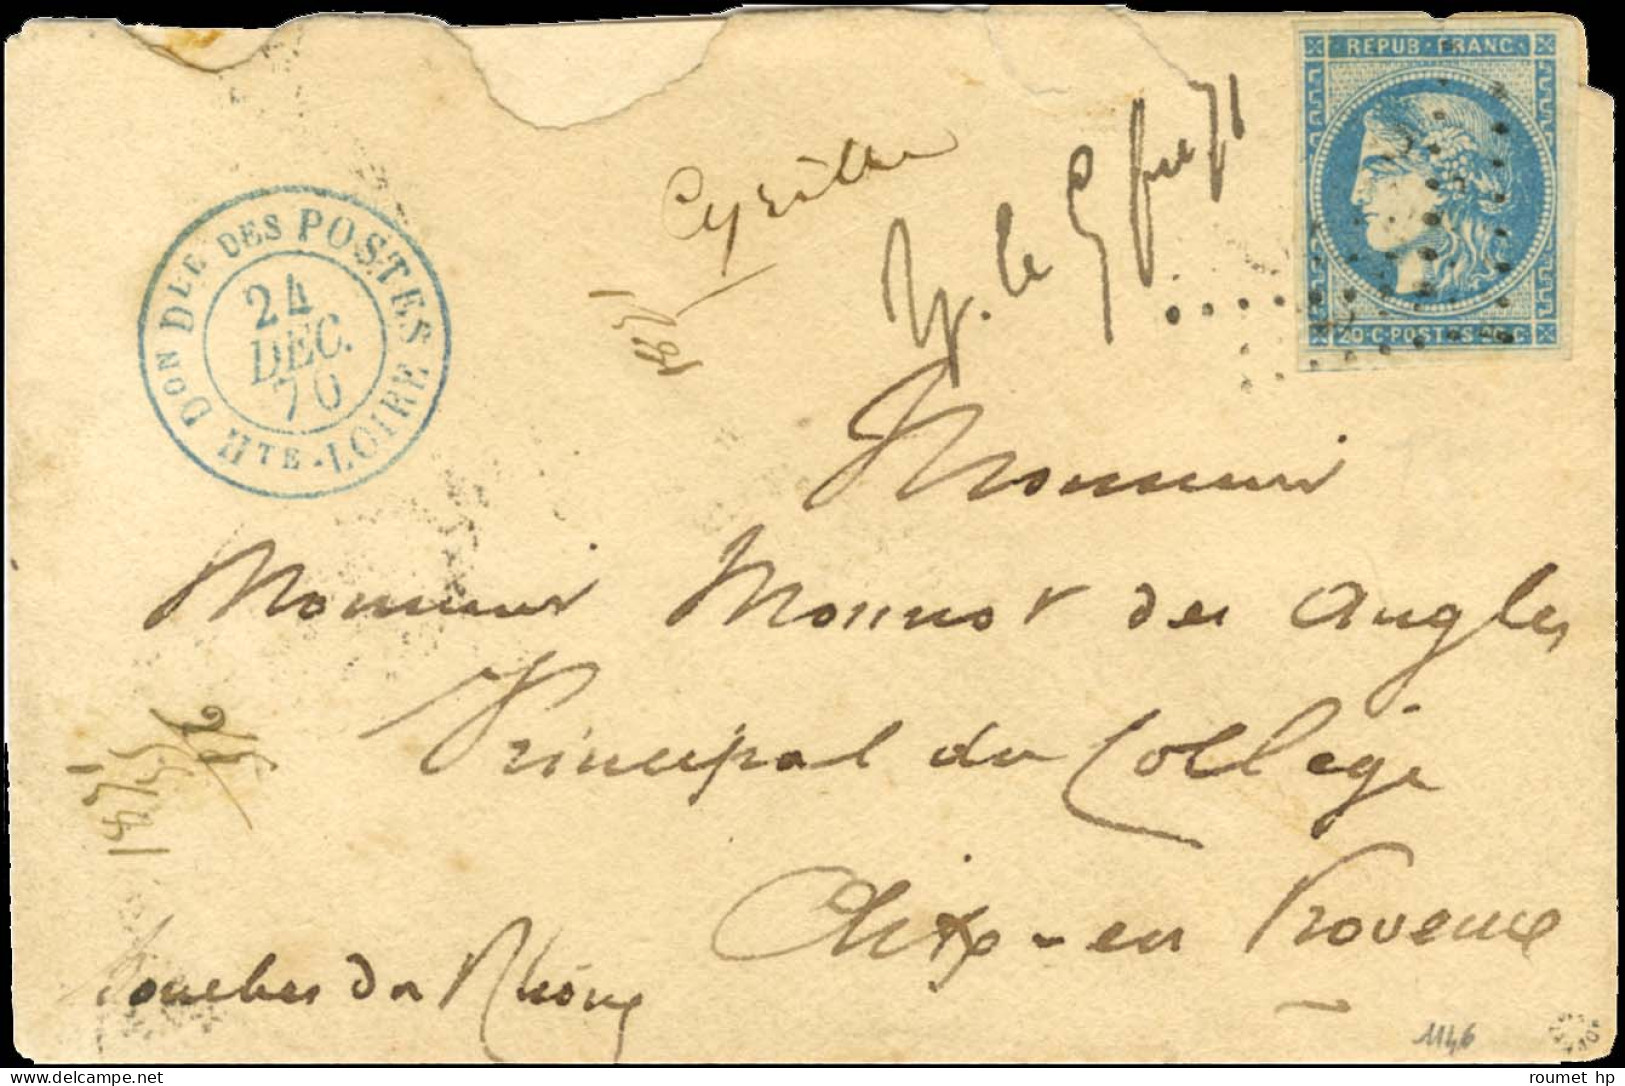 REPUB · FRANC ·
20 · C · POSTES · 20 · C
DON DLE DES POSTES
24
DEC.
70
HTE - LOIRE
Cyrille
R. le 5 71
Monsieur
Monsieur Monnot des Angles
Principal du Collège
Aix-en Provence
Bouches du Rhône
1146
roumet hp